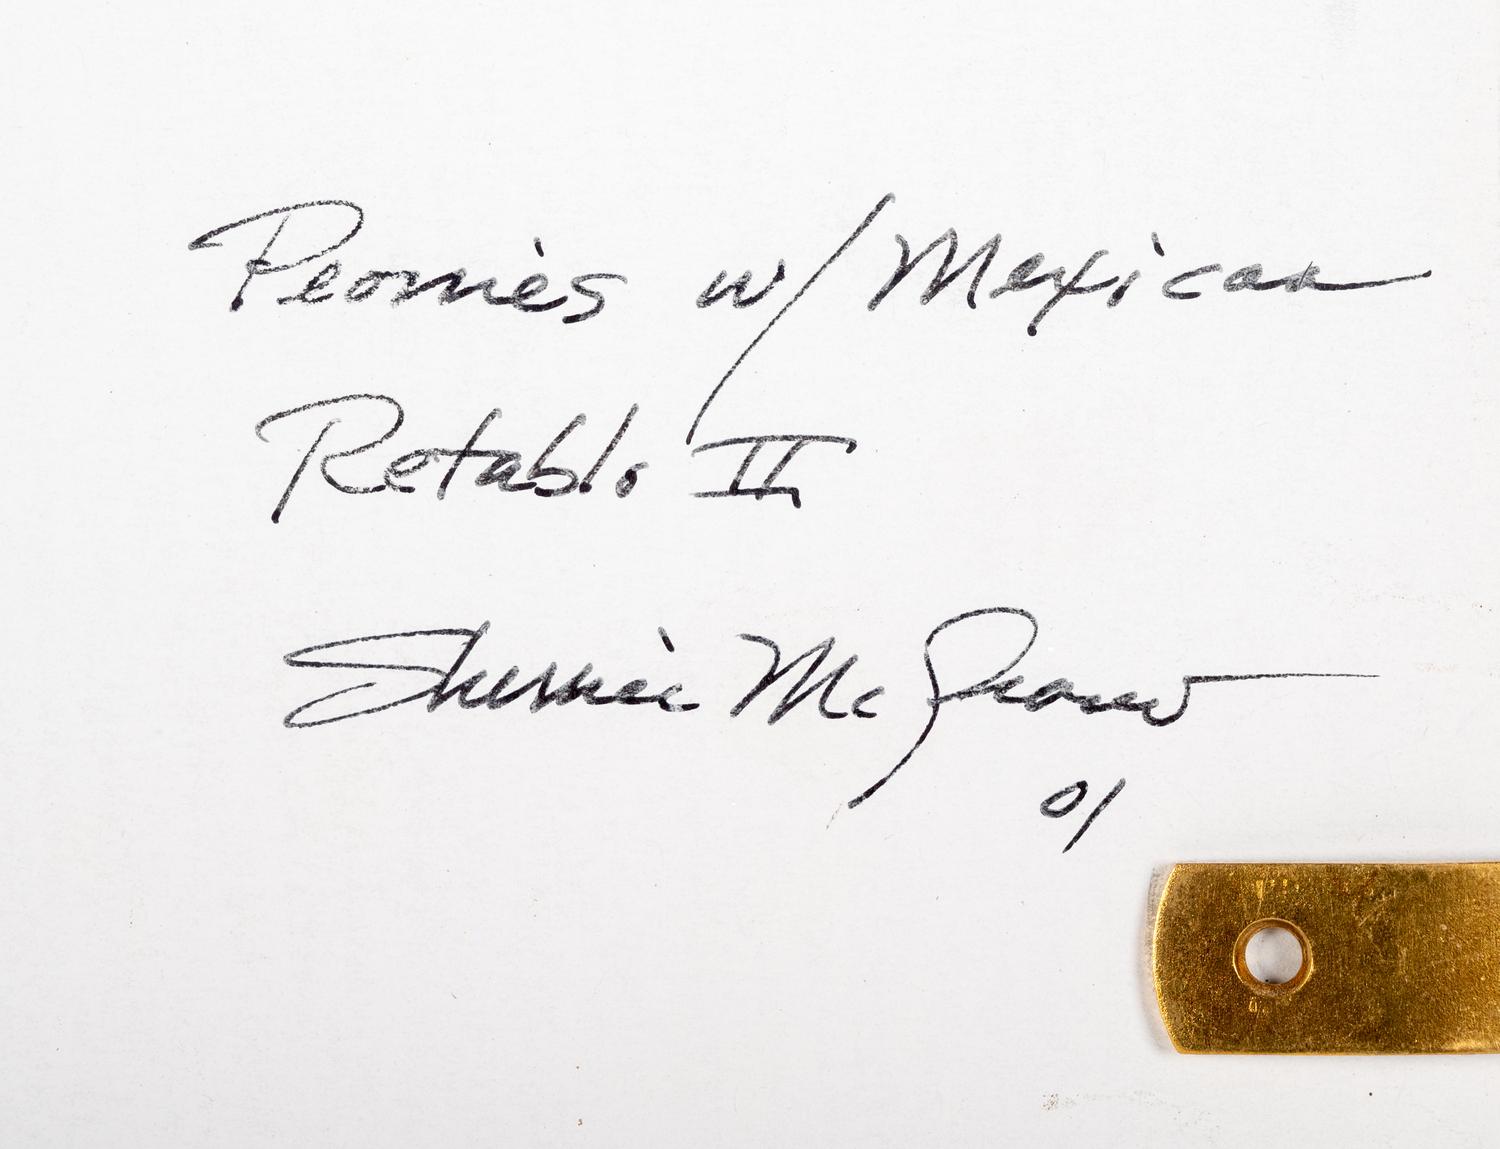 Peonies w/ Mexican
Retablo II
Sherrie McGraw
01